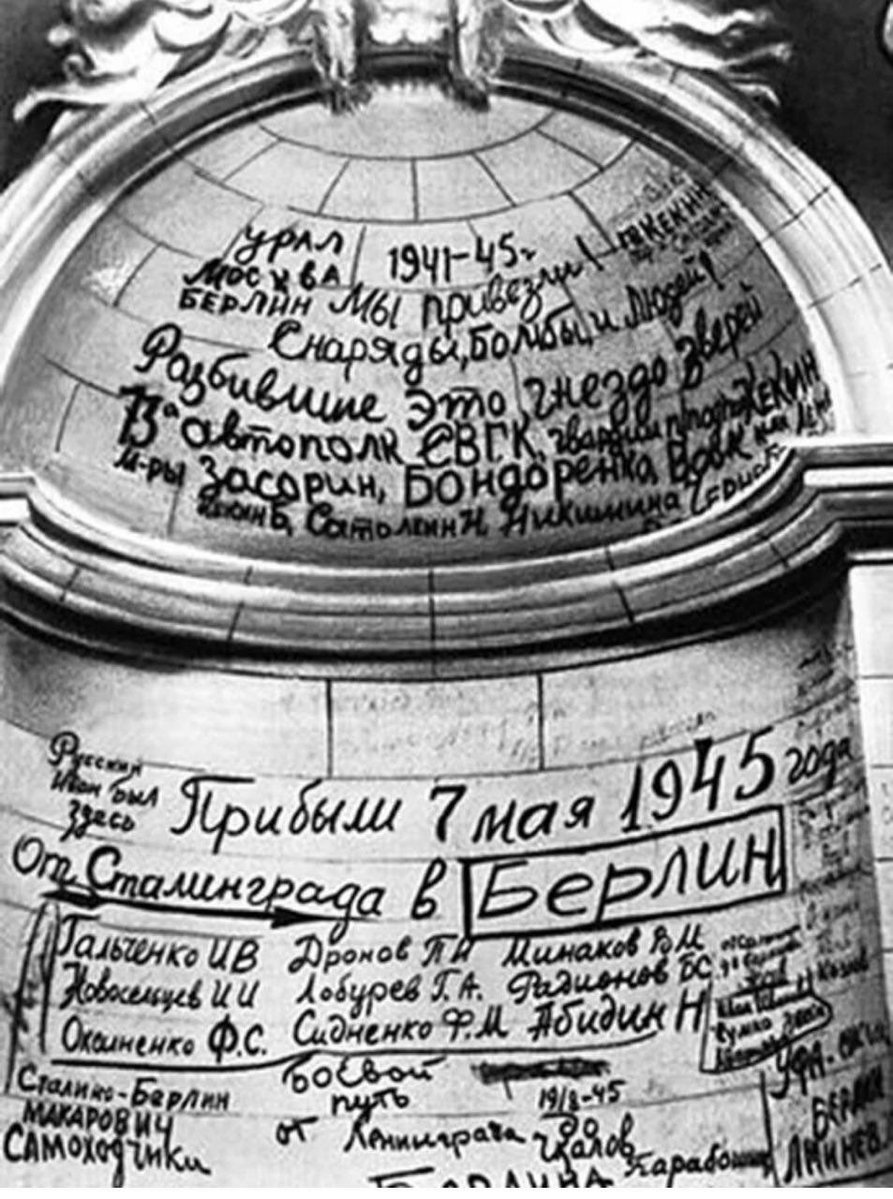 УРАЛ 1941-45г.
МОСКВА
БЕРЛИН Мы привезли!
Снаряды, Бомбы, и Людей!
Разбившие это гнездо зверей
13а автополк СВГК, гвардии КЕКИН
М-ры Засорин, БОНДОРЕНКА, ВОВК
Сатолкин Н, Никишина
КЕКИН
Русский
Иван был
Здесь
Прибыли 7 мая 1945 года
От Сталинграда в Берлин
Гальченко И В Дронов П И Минаков В М
Новосельцев И И Лобурев Г. А. Фадионов БС
Оксиненко Ф.С. Сидненко Ф. М Абидин Н
Козлов
Сталино-Берлин
МАКАРОВИЧ
САМОХОДЧИКИ
Боевой
путь 19/8-45
от Ленинграда до
Чкалов
Карабо
БЕРЛИНА
УФА-
БЕРЛИН